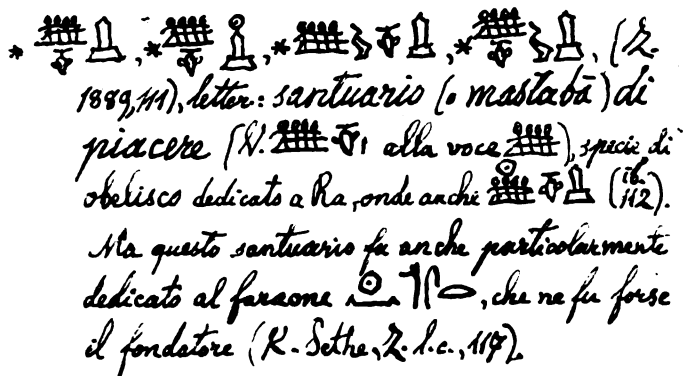 * , * , * , * , (Z.
1889,111), letter: santuario (o mastabà) di
piacere (V. alla voce ), specie di
obelisco dedicato a Ra, onde anche (ib. 112).
Ma questo santuario fu anche particolarmente
dedicato al faraone , che ne fu forse
il fondatore (K. Sethe, Z. l.c., 117).